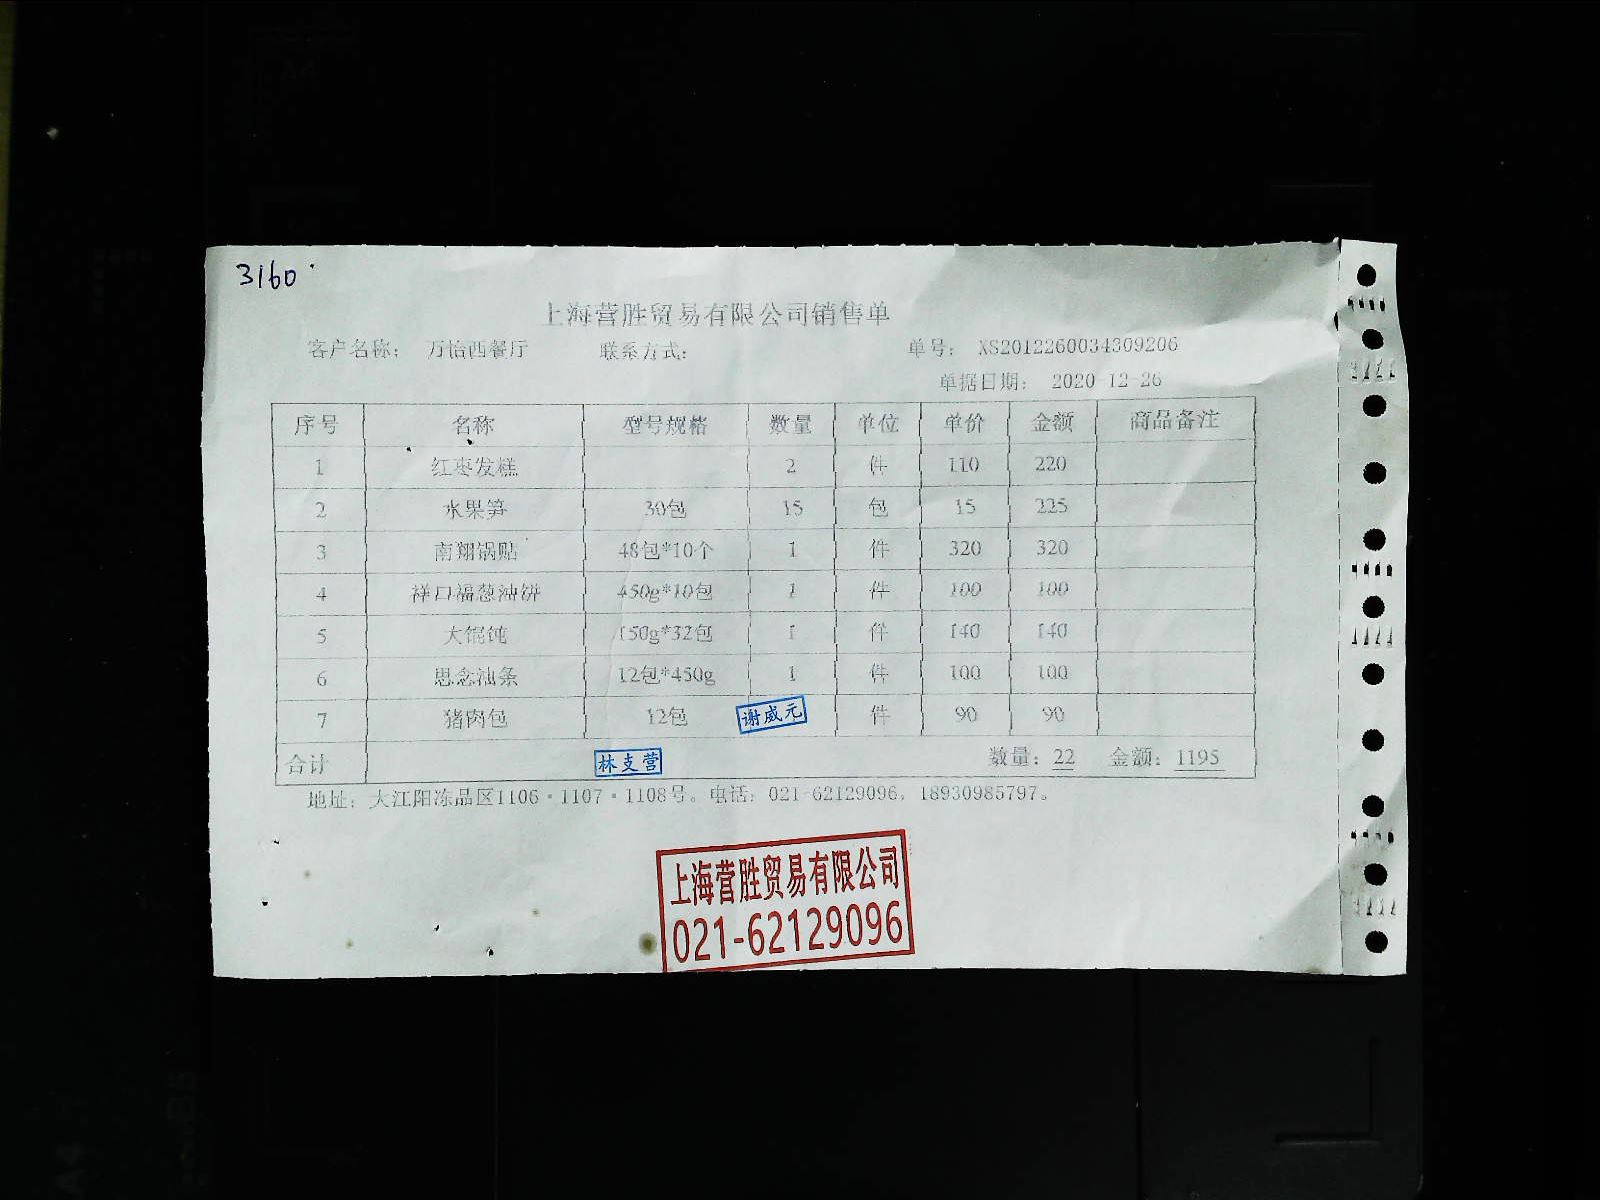 3160
上海营胜贸易有限公司销售单
客户名称： 万怡西餐厅 联系方式： 单号： XS2012260034309206
单据日期： 2020-12-26
序号 名称 型号规格 数量 单位 单价 金额 商品备注
1 红枣发糕 2 件 110 220
2 水果笋 30包 15 包 15 225
3 南翔锅贴 48包*10个 1 件 320 320
4 祥口福葱油饼 450g*10包 1 件 100 100
5 大馄饨 150g*32包 1 件 140 140
6 思念油条 12包*450g 1 件 100 100
7 猪肉包 12包 谢威元 件 90 90
合计 林支营 数量：22 金额：1195
地址：大江阳冻品区1106·1107·1108号。电话：021-62129096，18930985797。
上海营胜贸易有限公司
021-62129096